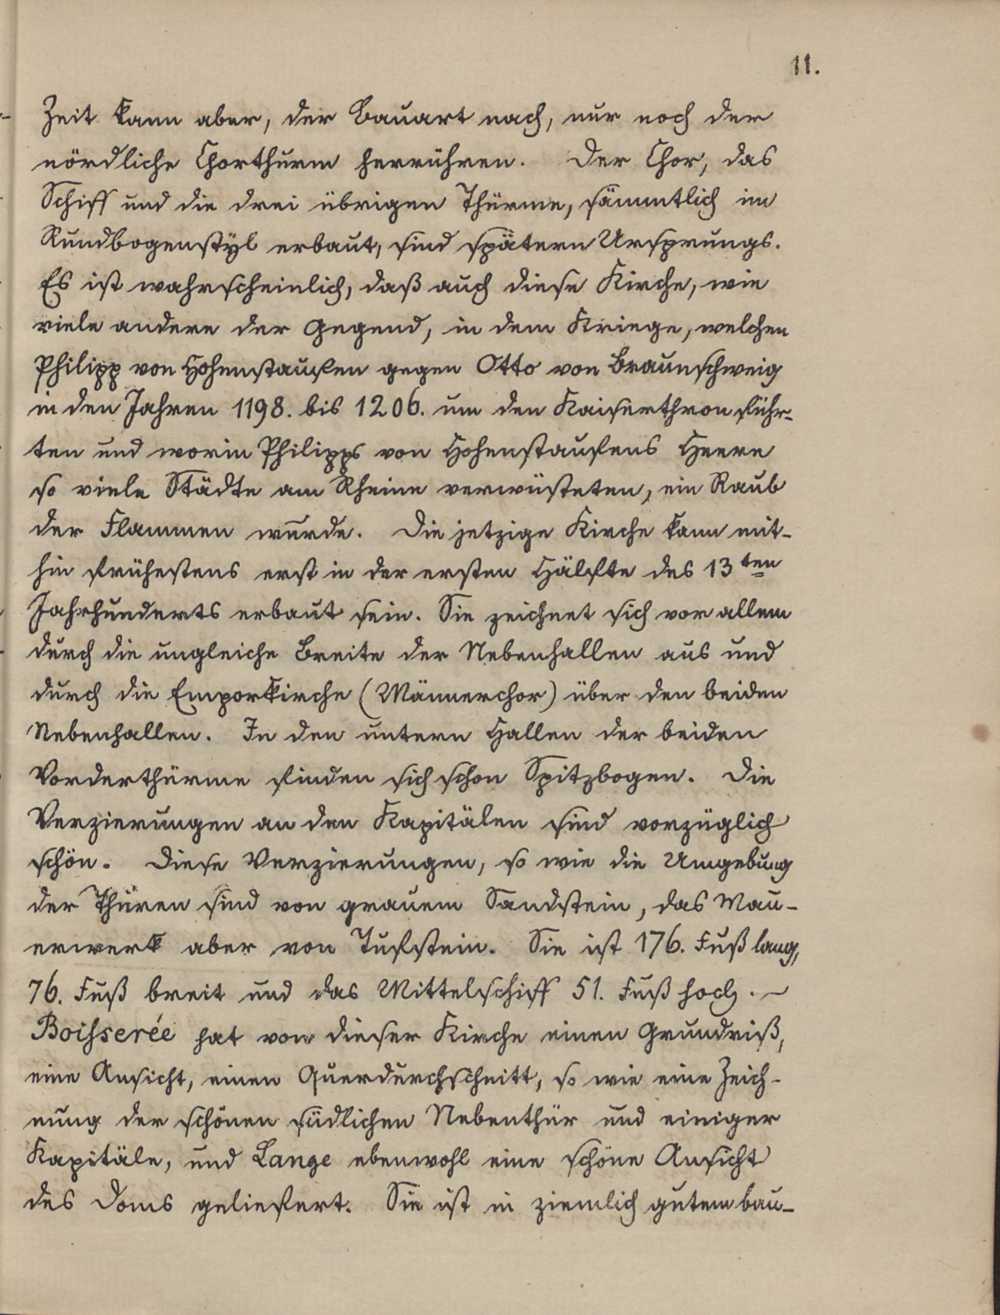 11.
Zeit kann aber, der Bauart nach, nur noch der
nördliche Chorthurm herrühren. Der Chor, das
Schiff und die drei übrigen Thürme, sämmtlich im
Rundbogenstyl erbaut, sind spätern Ursprungs.
Es ist wahrscheinlich, daß auch diese Kirche, wie
viele andere der Gegend, in dem Kriege, welchen
Philipp von Hohenstaufen gegen Otto von Braunschweig
in den Jahren 1198. bis 1206. um den Kaiserthron führ-
ten und worin Philipps von Hohenstaufens Heere
so viele Städte am Rheine verwüsteten, ein Raub
der Flammen wurde. Die jetzige Kirche kann mit-
hin frühestens erst in der ersten Hälfte des 13ten
Jahrhunderts erbaut sein. Sie zeichnet sich vor allem
durch die ungleiche Breite der Nebenhallen aus und
durch die Emporkirche (Männerchor) über den beiden
Nebenhallen. In den untern Hallen der beiden
Vorderthürme finden sich schon Spitzbogen. Die
Verzierungen an den Kapitälen sind vorzüglich
schön. Diese Verzierungen, so wie die Umgebung
der Thüren sind von grauem Sandstein, das Mau-
erwerk aber von Tufstein. Sie ist 176. Fuß lang,
76. Fuß breit und das Mittelschiff 51. Fuß hoch. –
Boisserée hat von dieser Kirche einen Grundriß,
eine Ansicht, einen Querdurchschnitt, so wie eine Zeich-
nung der schönen südlichen Nebenthür und einiger
Kapitäle, und Lange ebenwohl eine schöne Ansicht
des Doms geliefert. Sie ist in ziemlich gutem bau-